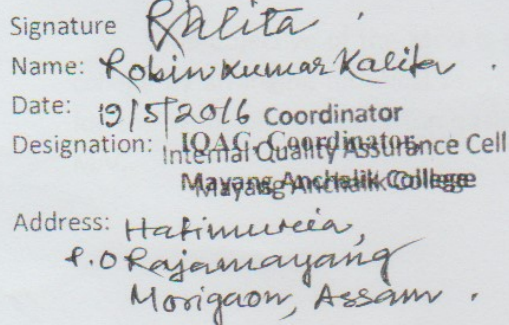 Signature RKalita
Name: Robin Kumar Kalita.
Date: 19/5/2016 Coordinator
Designation: IQAC, Coordinator,
Internal Quality Assurance Cell
Mayang Anchalik College
Mayang Anchalik College
Address: Hatimuria,
P.O Rajamayang
Morigaon, Assam.